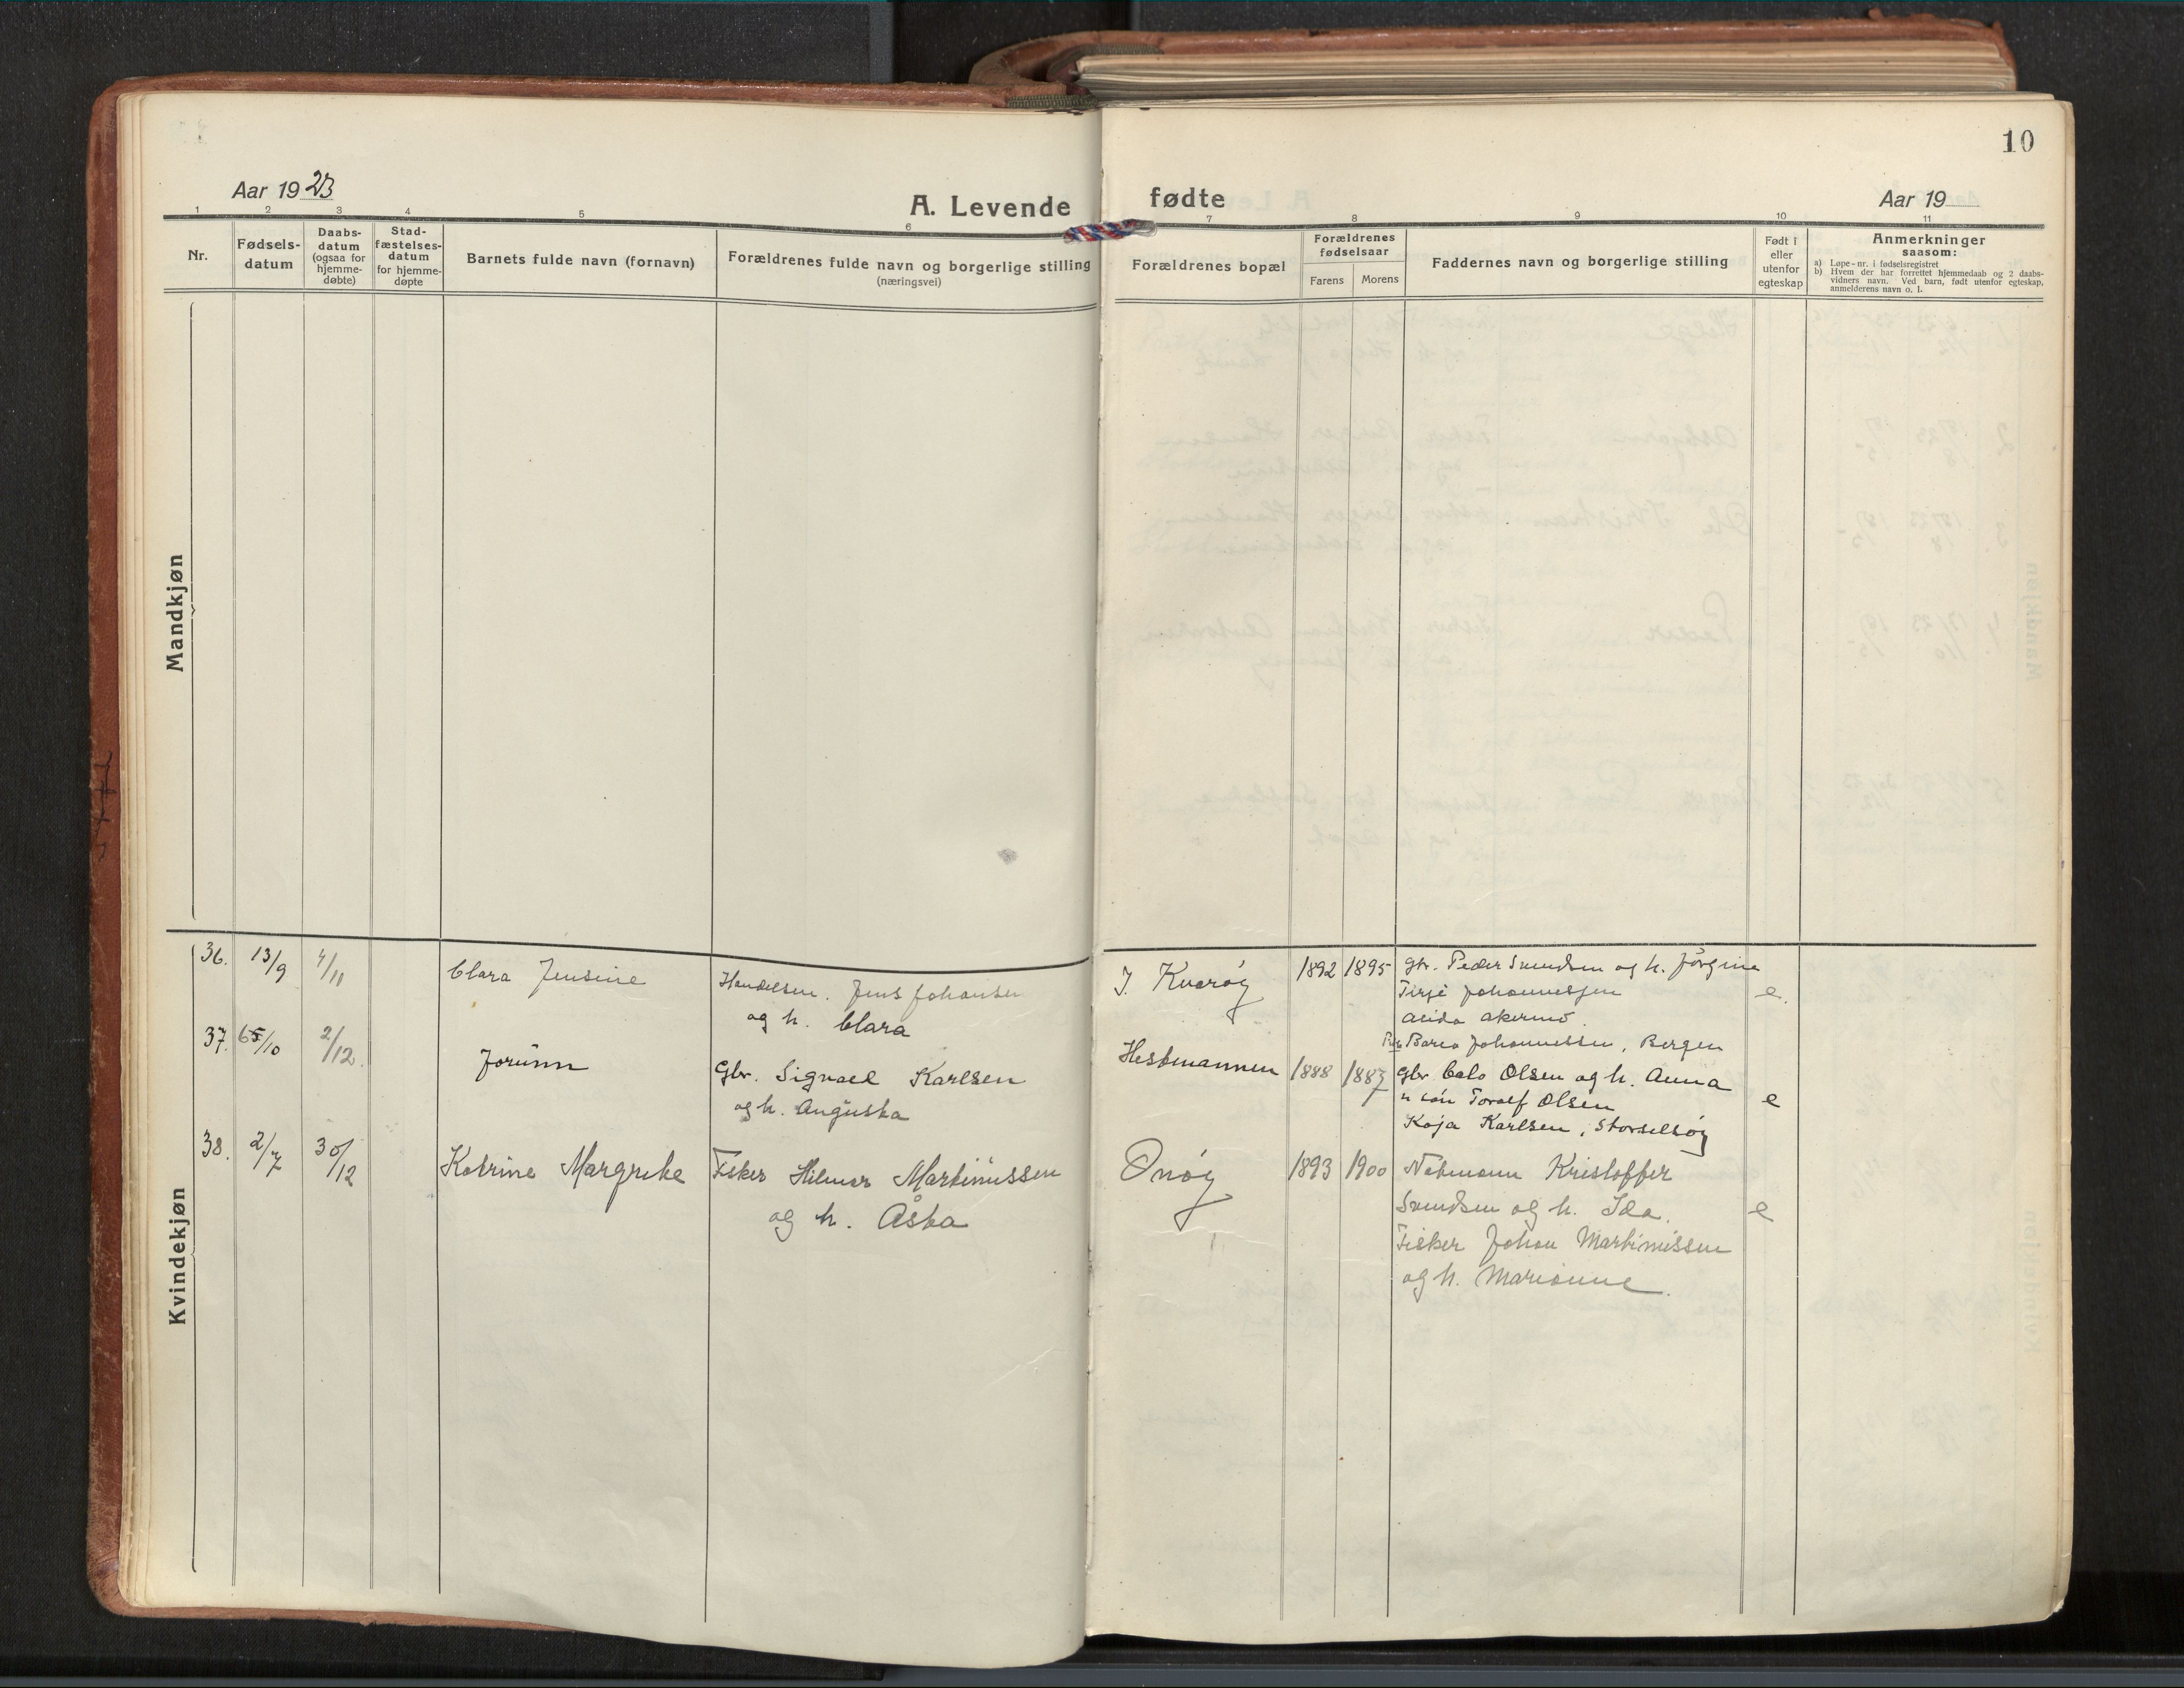 10
Aar 1923
A. Levende fødte
Aar 19
1 2 3 4 5 6 7 8 9 10 11
Nr.
Fødsels-
datum
Daabs-
datum
(ogsaa for
hjemme-
døbte)
Stad-
fæstelses-
datum
for hjemme-
døpte
Barnets fulde navn (fornavn)
Forældrenes fulde navn og borgerlige stilling
(næringsvei)
Forældrenes bopæl
Forældrenes
fødselsaar
Farens Morens
Faddernes navn og borgerlige stilling
Født i
eller
utenfor
egteskap
Anmerkninger
saasom:
a) Løpe-nr. i fødselsregistret
b) Hvem der har forrettet hjemmedaab og 2 daabs-
vidners navn. Ved barn, født utenfor egteskap,
anmelderens navn o. l.
Mandkjøn
Kvindekjøn
36. 13/9 4/11 Clara Jensine
Handelsm. Jens Johansen
og h. Clara
I. Kvarøy 1892 1895
Gbr. Peder Svendsen og h. Jörgine
Terje Johannessen
Alida Akermo
e.
37. 5/10 2/12. Jorunn
Gbr. Signael Karlsen
og h. Augusta
Hestmannen 1888 1887
Johannessen, Bergen
Gbr Calo Olsen og h. Anna
" sön Toralf Olsen
Kaja Karlsen, Storselsöy
e
38. 2/7 30/12 Katrine Margrete
Fisker Hilmar Martinussen
og h. Åsta
Onöy 1893 1900
Notmann Kristoffer
Svendsen og h. Ida.
Fisker Johan Martinussen
og h. Marianne.
e